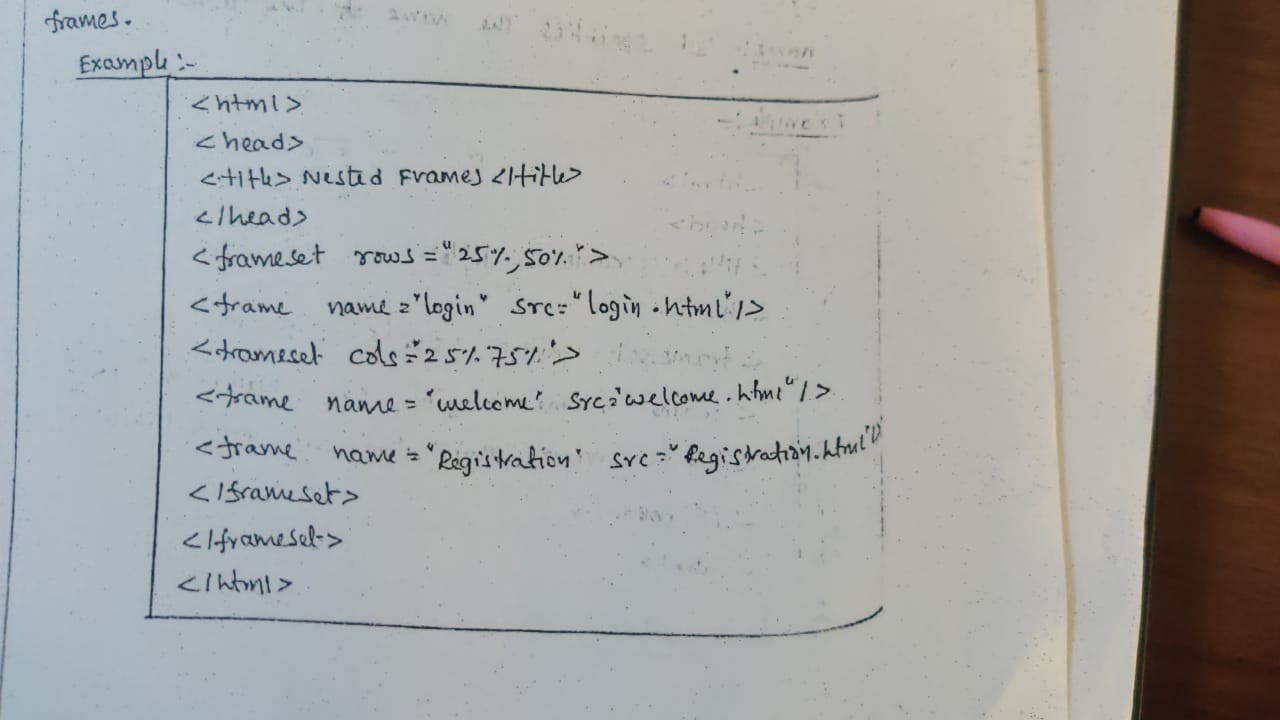 frames.
Example :-
<html>
<head>
<title> Nested Frames </title>
</head>
<frameset rows="25%,50%">
<frame name="login" src="login.html"/>
<frameset cols="25% 75%">
<frame name="welcome" src="welcome.html"/>
<frame name="Registration" src="Registration.html"/>
</frameset>
</frameset>
</html>